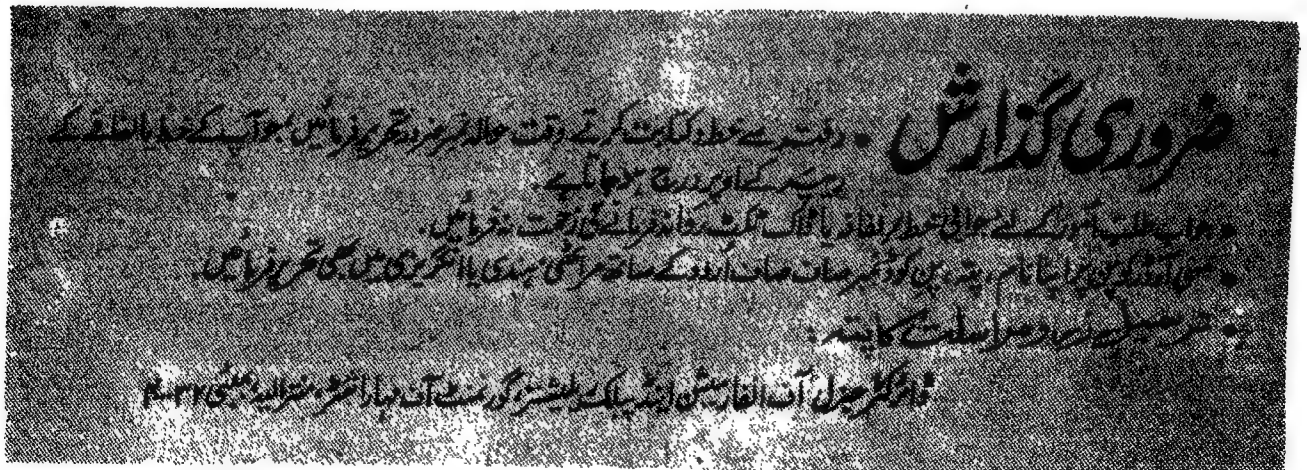 ضروری گذارش
• دفتر سے خط و کتابت کرتے وقت حوالہ نمبر ضرور تحریر فرمائیں جو آپ کے خط یا لفافے کے
اوپر درج ہوتا ہے۔
• جواب طلب امور کے لئے جوابی خط، لفافہ یا ڈاک ٹکٹ روانہ فرمانے کی زحمت نہ فرمائیں۔
• منی آرڈر کوپن پر اپنا نام، پتہ، پن کوڈ نمبر صاف صاف اُردو کے ساتھ مراٹھی، ہندی یا انگریزی میں بھی تحریر فرمائیں۔
• ترسیل زر و مراسلت کا پتہ :
ڈائرکٹر جنرل آف انفارمیشن اینڈ پبلک ریلیشنز، گورنمنٹ آف مہاراشٹر، منترالیہ، بمبئی ۳۲